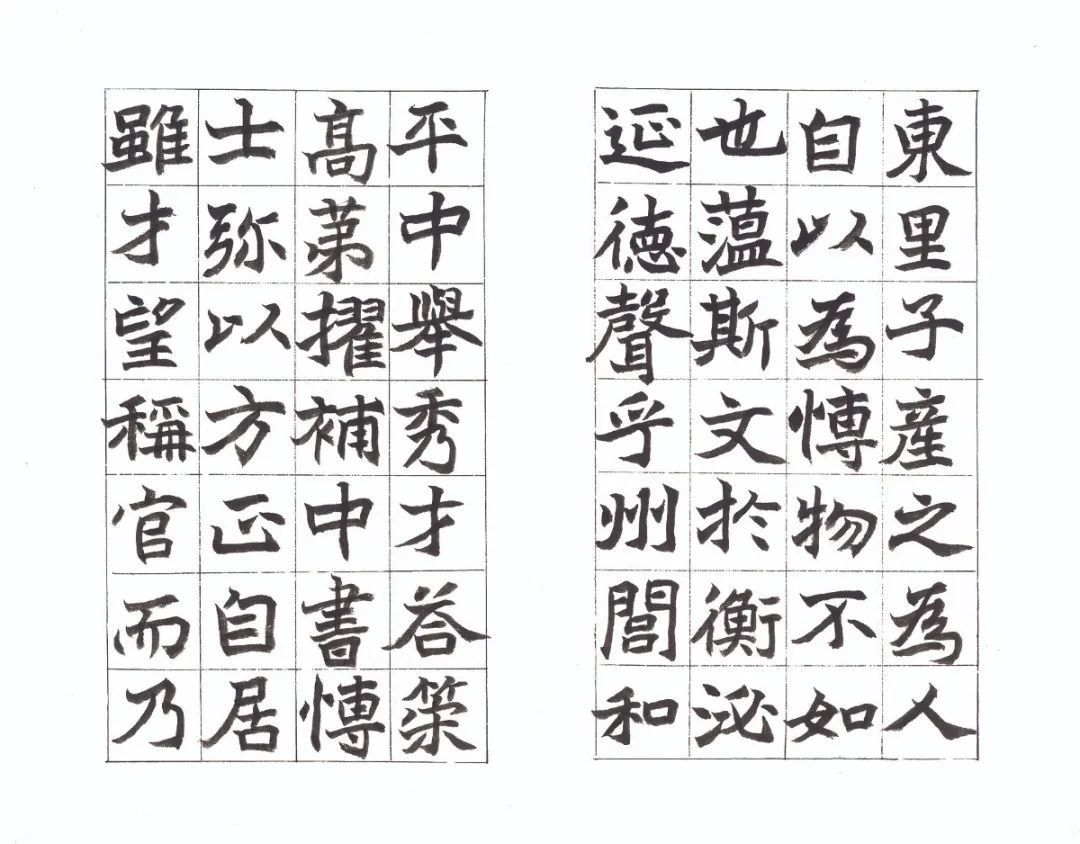 東里子產之為人
自以為愽物不如
也蕰斯文於衡泌
延徳聲乎州閭和
平中舉秀才荅策
髙苐擢補中書愽
士弥以方正自居
雖才望稱官而乃